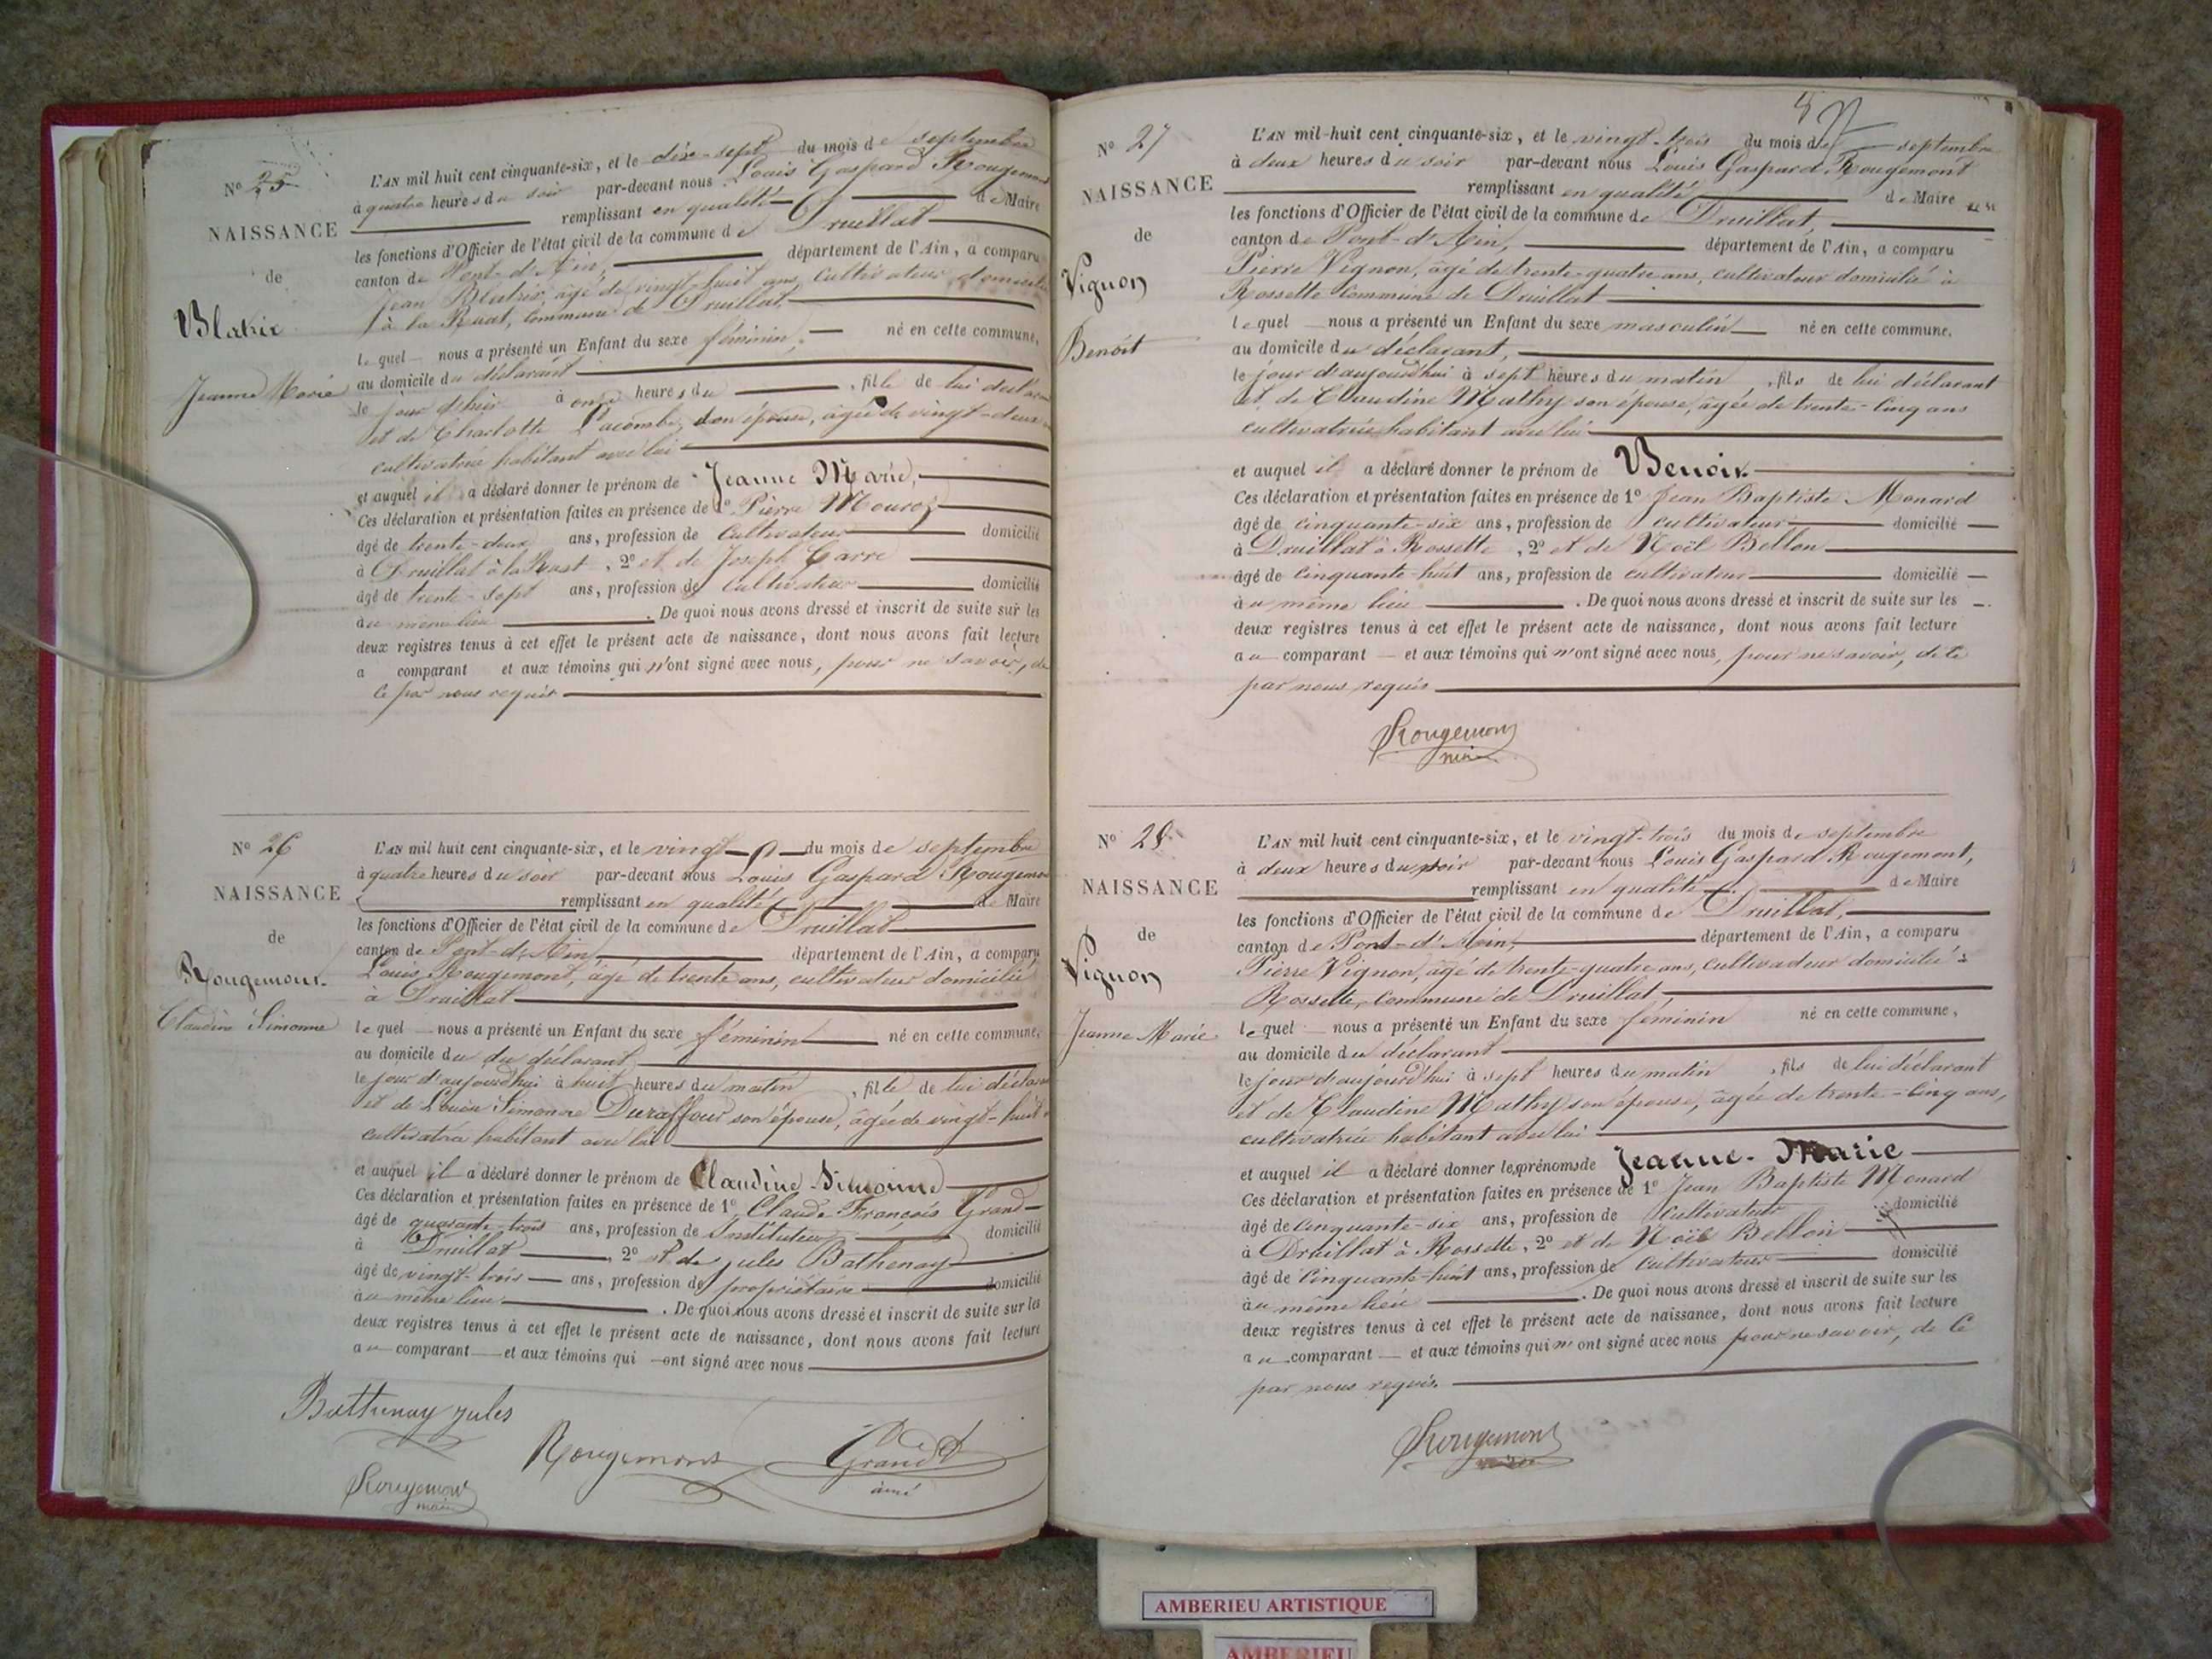 Nº 25
NAISSANCE
de
Blatrix
Jeanne Marie
L'AN mil huit cent cinquante-six, et le dix-sept du mois de septembre
à quatre heures du soir par-devant nous Louis Gaspard Rougemont
remplissant en qualité de Maire
les fonctions d'Officier de l'état civil de la commune de Druillat
canton de Pont-d'Ain, département de l'Ain, a comparu
Jean Blatrix, âgé de vingt-huit ans, cultivateur domicilié
à la Ruat, commune de Druillat,
lequel nous a présenté un Enfant du sexe féminin, né en cette commune,
au domicile du déclarant
le jour d'hier à onze heures du , fille de lui déclarant
et de Charlotte Lacombe, son épouse, âgée de vingt-deux
cultivatrice habitant avec lui
et auquel il a déclaré donner le prénom de Jeanne Marie,
Ces déclaration et présentation faites en présence de 1º Pierre Mouroz
âgé de trente-deux ans, profession de Cultivateur domicilié
à Druillat à la Ruat, 2º et de Joseph Carre
âgé de trente-sept ans, profession de Cultivateur domicilié
au même lieu . De quoi nous avons dressé et inscrit de suite sur les
deux registres tenus à cet effet le présent acte de naissance, dont nous avons fait lecture
a comparant et aux témoins qui n'ont signé avec nous, pour ne savoir, de
ce par nous requis
Nº 26
NAISSANCE
de
Rougemont
Claudine Simonne
L'AN mil huit cent cinquante-six, et le vingt du mois de septembre
à quatre heures du soir par-devant nous Louis Gaspard Rougemont
remplissant en qualité de Maire
les fonctions d'Officier de l'état civil de la commune de Druillat
canton de Pont-d'Ain, département de l'Ain, a comparu
Louis Rougemont, âgé de trente ans, cultivateur domicilié
à Druillat
lequel nous a présenté un Enfant du sexe féminin né en cette commune,
au domicile du du déclarant
le jour d'aujourd'hui à huit heures du matin , fille de lui déclarant
et de Louise Simonne Duraffour son épouse, âgée de vingt-huit
cultivatrice habitant avec lui
et auquel il a déclaré donner le prénom de Claudine Simonne
Ces déclaration et présentation faites en présence de 1º Claude François Grand
âgé de quarante-trois ans, profession de Instituteur domicilié
à Druillat , 2º et de jules Bathenay
âgé de vingt-trois ans, profession de propriétaire domicilié
au même lieu . De quoi nous avons dressé et inscrit de suite sur les
deux registres tenus à cet effet le présent acte de naissance, dont nous avons fait lecture
au comparant et aux témoins qui ont signé avec nous
Bathenay jules
Rougemont
Grand
ainé
Rougemont
maire
Nº 27
NAISSANCE
de
Vignon
Benoit
L'AN mil-huit cent cinquante-six, et le vingt-trois du mois de septembre
à deux heures du soir par-devant nous Louis Gaspard Rougemont
remplissant en qualité de Maire
les fonctions d'Officier de l'état civil de la commune de Druillat,
canton de Pont-d'Ain, département de l'Ain, a comparu
Pierre Vignon, âgé de trente-quatre ans, cultivateur domicilié à
Rossette commune de Druillat
lequel nous a présenté un Enfant du sexe masculin né en cette commune,
au domicile du déclarant,
le jour d'aujourd'hui à sept heures du matin , fils de lui déclarant
et de Claudine Mathy son épouse, âgée de trente-cinq ans
cultivatrice habitant avec lui
et auquel il a déclaré donner le prénom de Benoit
Ces déclaration et présentation faites en présence de 1º Jean Baptiste Monard
âgé de cinquante-six ans, profession de cultivateur domicilié
à Druillat à Rossette , 2º et de Noël Bellon
âgé de cinquante-huit ans, profession de cultivateur domicilié
au même lieu . De quoi nous avons dressé et inscrit de suite sur les
deux registres tenus à cet effet le présent acte de naissance, dont nous avons fait lecture
au comparant et aux témoins qui n'ont signé avec nous, pour ne savoir, de ce
par nous requis
Rougemont
maire
Nº 28
NAISSANCE
de
Vignon
Jeanne Marie
L'AN mil huit cent cinquante-six, et le vingt-trois du mois de septembre
à deux heures du soir par-devant nous Louis Gaspard Rougemont,
remplissant en qualité de Maire
les fonctions d'Officier de l'état civil de la commune de Druillat,
canton de Pont-d'Ain, département de l'Ain, a comparu
Pierre Vignon, âgé de trente-quatre ans, cultivateur domicilié à
Rossette, commune de Druillat,
lequel nous a présenté un Enfant du sexe féminin né en cette commune,
au domicile du déclarant
le jour d'aujourd'hui à sept heures du matin , fils de lui déclarant
et de Claudine Mathy son épouse, âgée de trente-cinq ans,
cultivatrice habitant avec lui
et auquel il a déclaré donner les prénoms de Jeanne-Marie
Ces déclaration et présentation faites en présence de 1º Jean Baptiste Monard
âgé de cinquante-six ans, profession de cultivateur domicilié
à Druillat à Rossette, 2º et de Noël Bellon
âgé de cinquante-huit ans, profession de cultivateur domicilié
au même lieu . De quoi nous avons dressé et inscrit de suite sur les
deux registres tenus à cet effet le présent acte de naissance, dont nous avons fait lecture
au comparant et aux témoins qui n'ont signé avec nous pour ne savoir, de ce
par nous requis.
Rougemont
maire
AMBERIEU ARTISTIQUE
AMBERIEU